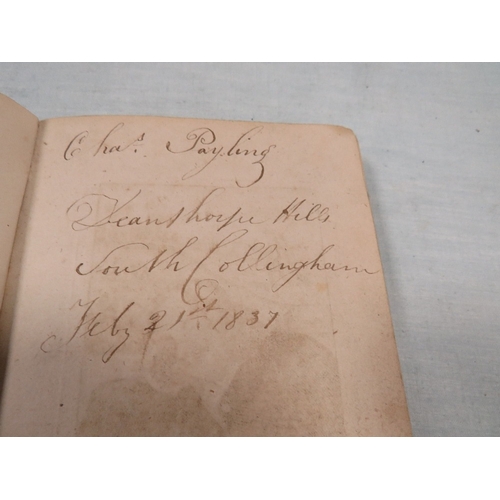 Chas. Payling
Deanthorpe Hills
South Collingham
Feby 21st. 1837